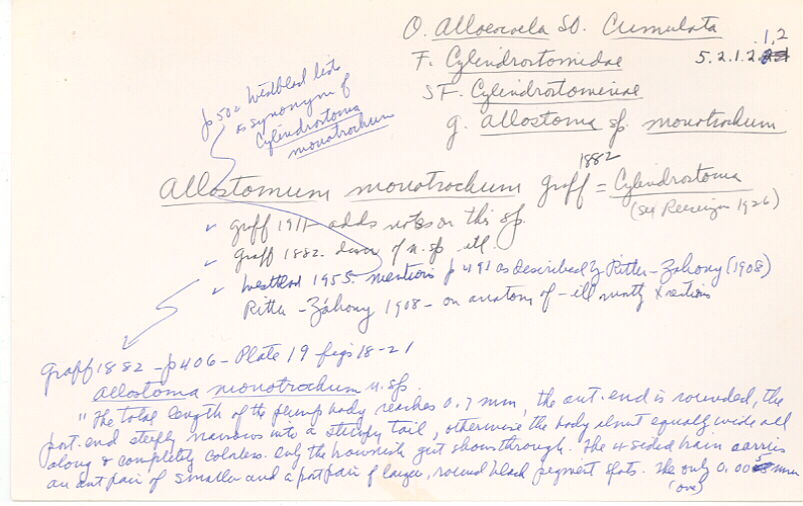 O. Alloeocoela SO. Cumulata
F. Cylindrostomidae 5.2.1.2.1,2
SF. Cylindrostominae
g. Allostoma sp. monotrochum
p502 Westblad lists
as synonym of
Cylindrostoma
monotrochum
Allostomum monotrochum Graff 1882 = Cylindrostoma
(see Reisinger 1926)
✓ Graff 1911 - adds notes on this sp.
✓ Graff 1882. descr of n. sp. ill.
✓ Westblad 1955. mentions p 491 as described by Ritter-Záhony (1908)
Ritter-Záhony 1908 - on anatomy of - ill mostly X sections
Graff 1882 - p406 - Plate 19 figs 18-21
Allostoma monotrochum n. sp.
"The total length of the plump body reaches 0.7 mm, the ant. end is rounded, the
post. end steeply narrows into a tail, otherwise the body almost equally wide all
along & completely colorless. Only the brownish gut shows through. The 4 sided brain carries
an ant pair of smaller and a post pair of larger, round black pigment spots. The only 0.005 mm
(ove)